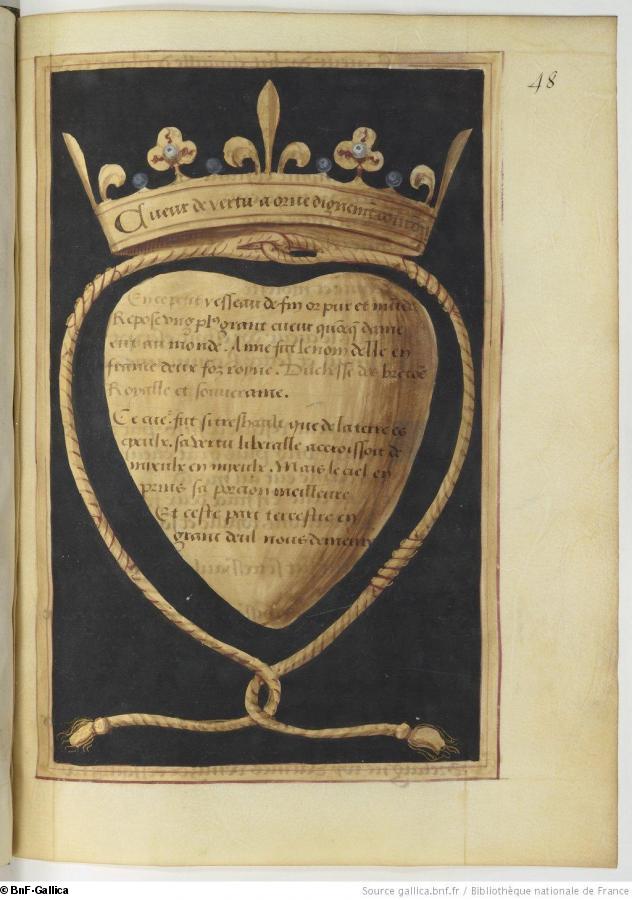 48
Cueur de vertu aorne dignemēt couroñ
En ce petit vesseau de fin or pur et munde
Repose ung plꝰ grant cueur quōcq̄ dame
eut au monde. Anne fut le nom delle en
france deux foz royne. Duchesse des bretōs
Royalle et souveraine.
Ce cue fut si tres hault que de la terre es
cyeulx. sa vertu liberalle accroissoit de
mieulx en mieulx. Mais le ciel en
prins sa porcion meilleure
Et ceste part terrestre en
grant deul nous demeure
© BnF-Gallica
Source gallica.bnf.fr / Bibliothèque nationale de France